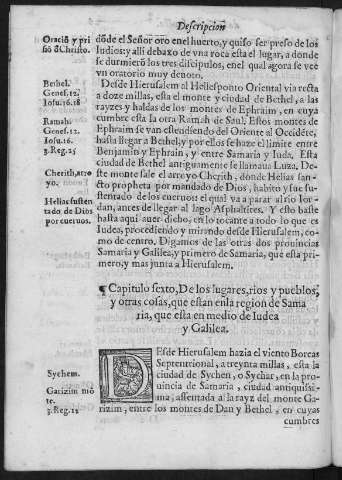 Descripcion
Oraciō y pri
siō ďChristo.
dōde el Señor oro en el huerto, y quiso ser preso de los
Iudios: y alli debaxo de vna roca esta el lugar, a donde
se durmierō los tres discipulos, en el qual agora se vee
vn oratorio muy denoto.
Bethel.
Genes.12.
Iosu.16.18
Ramah.
Genes.12.
Iosu.16.
3.Reg.25
Desde Hierusalem al Hellesponto Oriental via resta
a doze millas, esta el monte y ciudad de Bethel, a las
rayzes y haldas de los montes de Ephraim, en cuya
cumbre esta la otra Ramah de Saul. Estos montes de
Ephraim se van estēdiendo del Oriente al Occidēte,
hasta llegar a Bethel, y por ellos se haze el limite entre
Benjamin y Ephrain, y entre Samaria y Iuda. Esta
ciudad de Bethel antiguamente se llamaua Luza, De-
Cherith, arro
yo.
Helias susten
tado de Dios
por cueruos.
ste monte sale el arroyo Cherith, donde Helias san-
cto propheta por mandado de Dios, habito y fue su-
stentado de los cueruos el qual va a parar al rio Ior-
dan, antes de llegar al lago Asphaltites. Y esto baste
hasta aqui auer dicho, en lo tocante a todo lo que es
Iudea, procediendo y mirando desde Hierusalem, co-
mo de centro. Digamos de las otras dos prouincias
Samaria y Galilea, y primero de Samaria, que esta pri-
mero, y mas junta a Hierusalem.
¶ Capitulo sexto, De los lugares, rios y pueblos,
y otras cosas, que estan en la region de Sama
ria, que esta en medio de Iudea
y Galilea.
Sychem.
Garizim mō
te.
3.Reg.12
DEsde Hierusalem hazia el viento Boreas
Septentrional, a treynta millas, esta la
ciudad de Sychen, o Sychar, en la pro-
uincia de Samaria, ciudad antiquissi-
ma, assentada a la rayz del monte Ga-
rizim, entre los montes de Dan y Bethel, en cuyas
cumbres